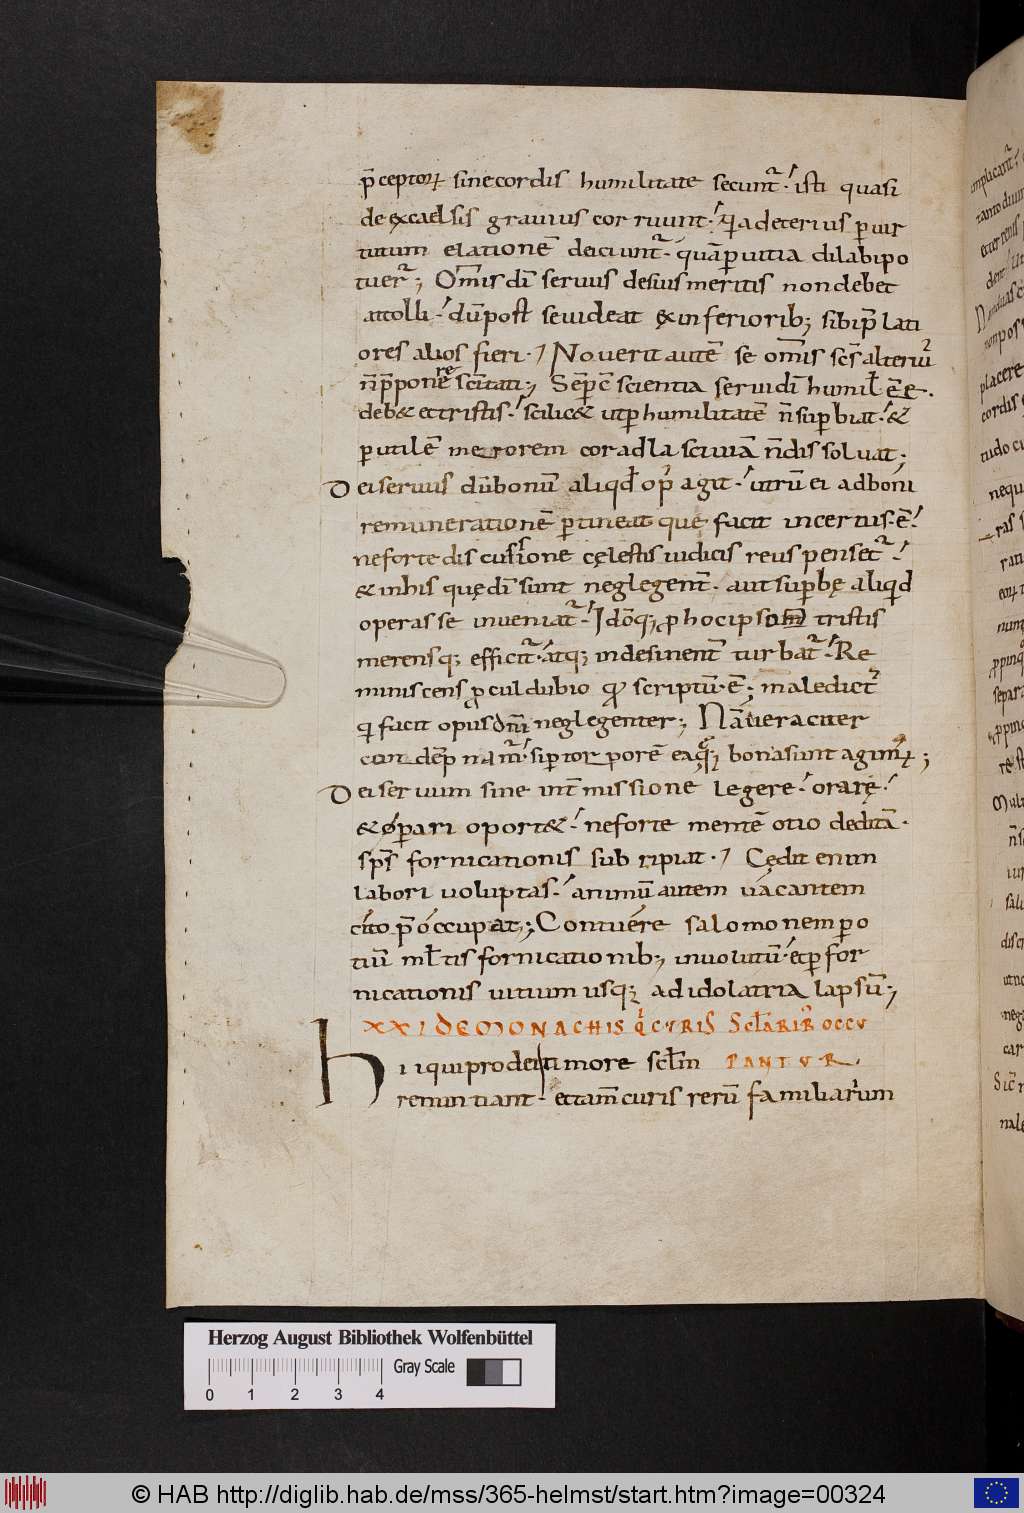 p̄ceptoꝝ sine cordis humilitate secunt᷑· isti quasi
de excaelsis gravius corruunt· quia deterius ꝑ uir
tutum elationē deiciunt᷑· quā ꝑ uitia dilabi po
tuer᷑; Om̄is dī servus de suis meritis non debet
attolli· dū post se uideat ex inferiorib; sibi p̄lati
ores alios fieri· Noverit autē se om̄is sc̄s alteriꝰ
n̄ p̄ponere sc̄itati; Seꝑ ē scientia servi dī humil̄ ē ⁊ c̄.
deb& et tristis· scilic& ut ꝑ humilitatē n̄ suꝑbiat· &
ꝑ utilē merorem cor ad lasciuiā n̄ dissolvat;
Dei servus dū bonū aliqđ opꝰ agit· utrū ei ad boni
remunerationē ꝑtineat que facit incertus· ē·
ne forte discussione cęlestis iudicis reus penset᷑·
& in his quę dī sunt neglegent̄· aut suꝑbę aliqid
operasse inveniat᷑· Idōq; ꝓ hoc ipsum tristis
merensq; efficit᷑· atq; indesinent̄ turbat᷑· Re
miniscens ꝓcul dubio qđ scriptū· ē; maledict᷑
qi facit opus dn̄i neglegenter; Nā veraciter
condēpnant᷑· si ꝑ torporē eaq; bona sunt agimꝰ;
Dei servum sine int̄missione legere· orare·
& oꝑari oport&· ne forte mentē otio deditā·
sps̄ fornicationis subripiat· Cędit enim
labori voluptas· animū autem vacantem
cito p̄occupat; Contuere salomonem ꝑ o
tiū ml̄tis fornicationib; involutū· et ꝑ for
nicationis uitium usq; ad idolatria lapsū;
XXI DE MONACHIS QI CVRIS SCL̄ARIBꝰ OCCV
PANTVR.
Hii qui pro dei timore scl̄m
renuntiant· et tam̄ curis rerū familiarum
Herzog August Bibliothek Wolfenbüttel
Gray Scale
0 1 2 3 4
© HAB http://diglib.hab.de/mss/365-helmst/start.htm?image=00324